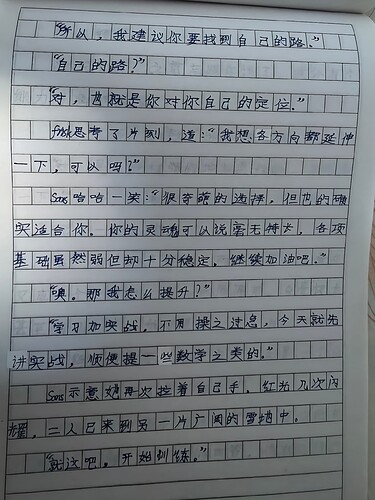 “所以，我建议你要找到自己的路。”
“自己的路？”
“对，也就是你对你自己的定位。”
frisk思考了片刻，道：“我想各方向都延伸
一下，可以吗？”
Sans哈哈一笑：“很奇葩的选择，但也的确
实适合你。你的灵魂可以说害无特长，各项
基础虽然弱但却十分稳定。继续加油吧。”
“噢。那我怎么提升？”
“学习加实战。不用操之过急，今天就先
讲实战，顺便提一些数学之类的。”
Sans示意她再次拉着自己手。红光几次闪
耀，二人已来到另一片广阔的雪地中。
“就这吧。开始训练。”